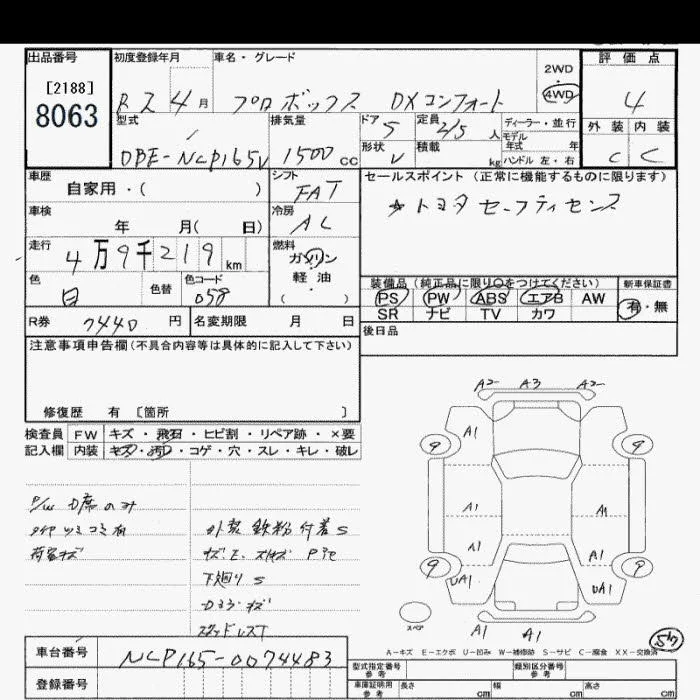 出品番号 初度登録年月 車名・グレード 評価点
[2188]
8063
R2 4月 プロボックス DXコンフォート 2WD 4WD 4
型式 排気量 ドア 5 定員 2/5人 ディーラー・並行 外装 内装
モデル年式 年
DBE-NCP165V 1500cc 形状 V 積載 kg ハンドル 左・右 C C
車歴 シフト セールスポイント (正常に機能するものに限ります)
自家用・( ) FAT ☆トヨタ セーフティセンス
車検 冷房
年 月( 日) AC
走行 燃料
4万9千219km ガソリン
軽・油
( ・ )
色 色替 色コード
白 058
装備品 (純正品に限り○をつけてください) 新車保証書
PS PW ABS エアB AW 有・無
SR ナビ TV カワ
R券 7440円 名変期限 月 日 後日品
注意事項申告欄(不具合内容等は具体的に記入して下さい)
修復歴 有 〔箇所 〕
検査員 FW キズ・飛石・ヒビ割・リペア跡・×要
記入欄 内装 キズ・汚レ・コゲ・穴・スレ・キレ・破レ
P/W D席のみ
タイヤツミコミ有 外装 鉄粉付着S
荷室キズ
下廻りS
A2 A3 A2
A1
9 9
A1 A1
A1 A1
9 9
UA1 UA1
スペア
A1 A1
A-キズ E-エクボ U-凹み W-補修跡 S-サビ C-腐食 XX-交換済
車台番号 NCP165-0074483
登録番号
型式指定番号 参考 類別区分番号 参考
車庫証明用 参考 長さ cm 幅 cm 高さ cm